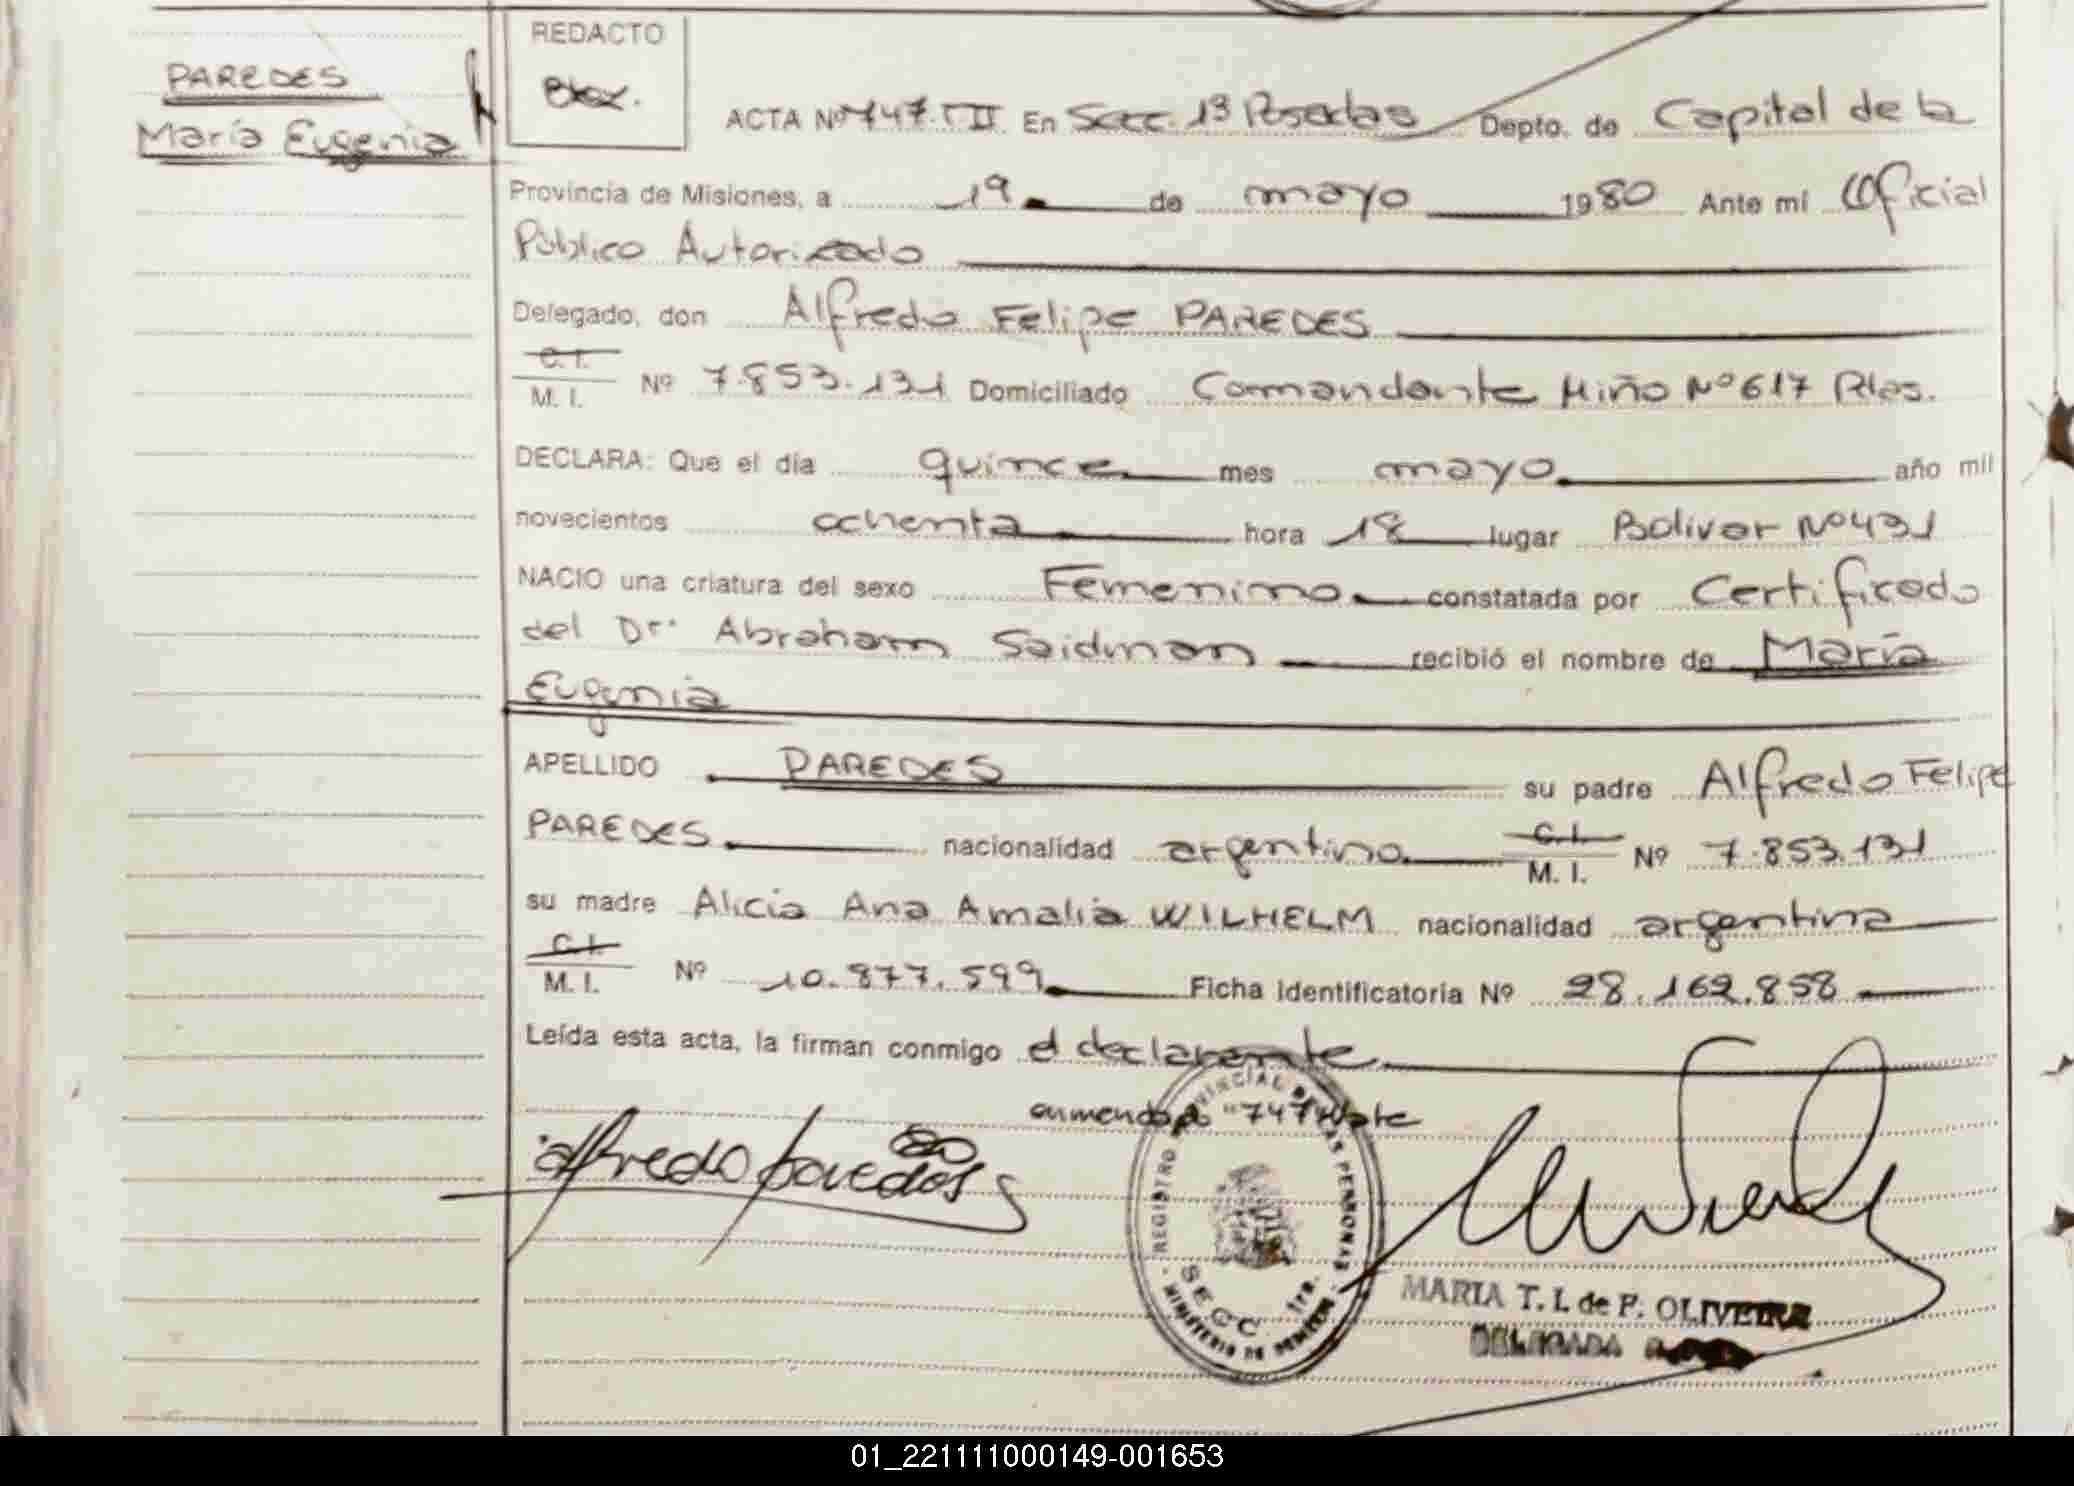 PAREDES
María Eugenia
REDACTO
ACTA Nº 747. T II En Secc. 1ª Posadas Depto. de Capital de la
Provincia de Misiones, a 19 de mayo 1980 Ante mi Oficial
Público Autorizado
Delegado, don Alfredo Felipe PAREDES
C. I.
M. I. Nº 7.853.131 Domiciliado Comandante Miño Nº 617 Pdas.
DECLARA: Que el día quince mes mayo año mil
novecientos ochenta hora 18 lugar Bolivar Nº 431
NACIO una criatura del sexo Femenino constatada por Certificado
del Dr. Abraham Saidman recibió el nombre de María
Eugenia
APELLIDO PAREDES su padre Alfredo Felipe
PAREDES nacionalidad argentino C. I. M. I. Nº 7.853.131
su madre Alicia Ana Amalia WILHELM nacionalidad argentina
C. I.
M. I. Nº 10.877.599 Ficha Identificatoria Nº 28.162.858
Leída esta acta, la firman conmigo el declarante
enmendado "747" Vale
alfredo paredes
REGISTRO PROVINCIAL DE LAS PERSONAS
SECC. 1ra.
MINISTERIO DE
MARIA T. I. de F. OLIVEIRA
DELEGADA
01_221111000149-001653